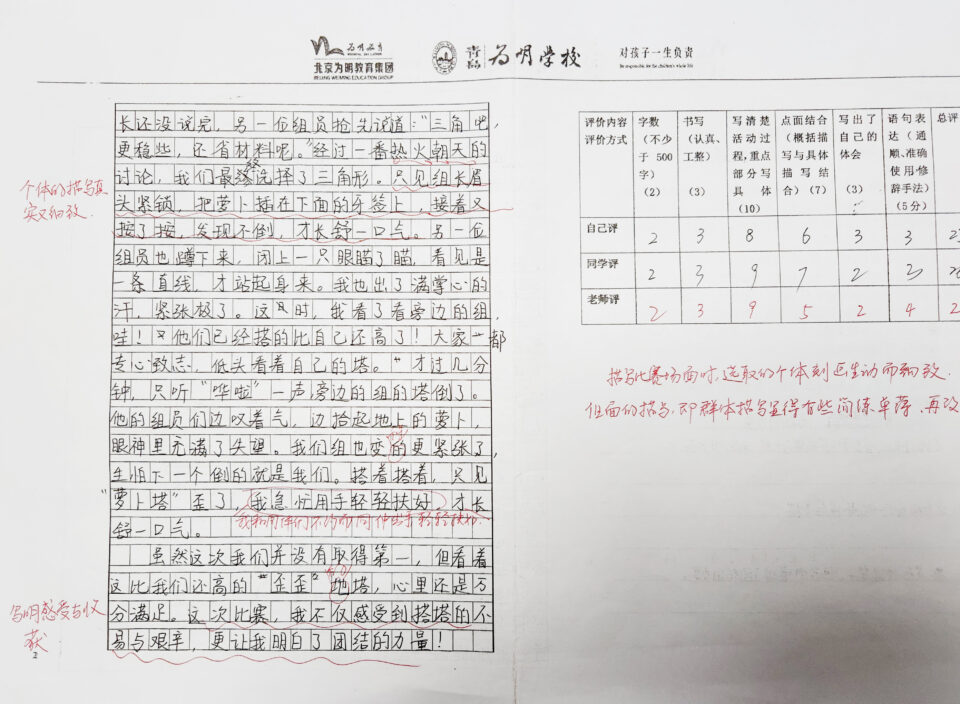 为明教育
北京为明教育集团
BEIJING WEIMING EDUCATION GROUP
青岛 为明学校
对孩子一生负责
Be responsible for the children's whole life
长还没说完，另一位组员抢先说道："三角吧，
更稳些，还省材料呢。"经过一番热火朝天的
讨论，我们最终选择了三角形。只见组长眉
头紧锁，把萝卜插在下面的牙签上，接着又
按了按，发现不倒，才长舒一口气。另一位
组员也蹲下来，闭上一只眼瞄了瞄，看见是
一条直线，才站起身来。我也出了满掌心的
汗，紧张极了。这时，我看了看旁边的组，
哇！他们已经搭的比自己还高了！大家都
专心致志，低头看着自己的塔。才过几分
钟，只听"哗啦"一声旁边的组的塔倒了。
他的组员们边叹着气，边拾起地上的萝卜，
眼神里充满了失望。我们组也变的更紧张了，
生怕下一个倒的就是我们。搭着搭着，只见
"萝卜塔"歪了，我急忙用手轻轻扶好，才长
我和同伴们不约而同伸出手轻轻扶好
舒一口气。
虽然这次我们并没有取得第一，但看着
这比我们还高的"歪歪"地塔，心里还是万
分满足。这次比赛，我不仅感受到搭塔的不
易与艰辛，更让我明白了团结的力量！
个体的描写真
实又细致
写明感受与收
获
评价内容 评价方式 字数（不少于500字）（2） 书写（认真、工整）（3） 写清楚活动过程，重点部分写具体（10） 点面结合（概括描写与具体描写结合）（7） 写出了自己的体会（3） 语句表达（通顺、准确使用修辞手法）（5分） 总评
自己评 2 3 8 6 3 3
同学评 2 3 9 7 2 3
老师评 2 3 9 5 2 4
描写比赛场面时，选取的个体刻画生动而细致
但面的描写，即群体描写显得有些简练单薄，再改